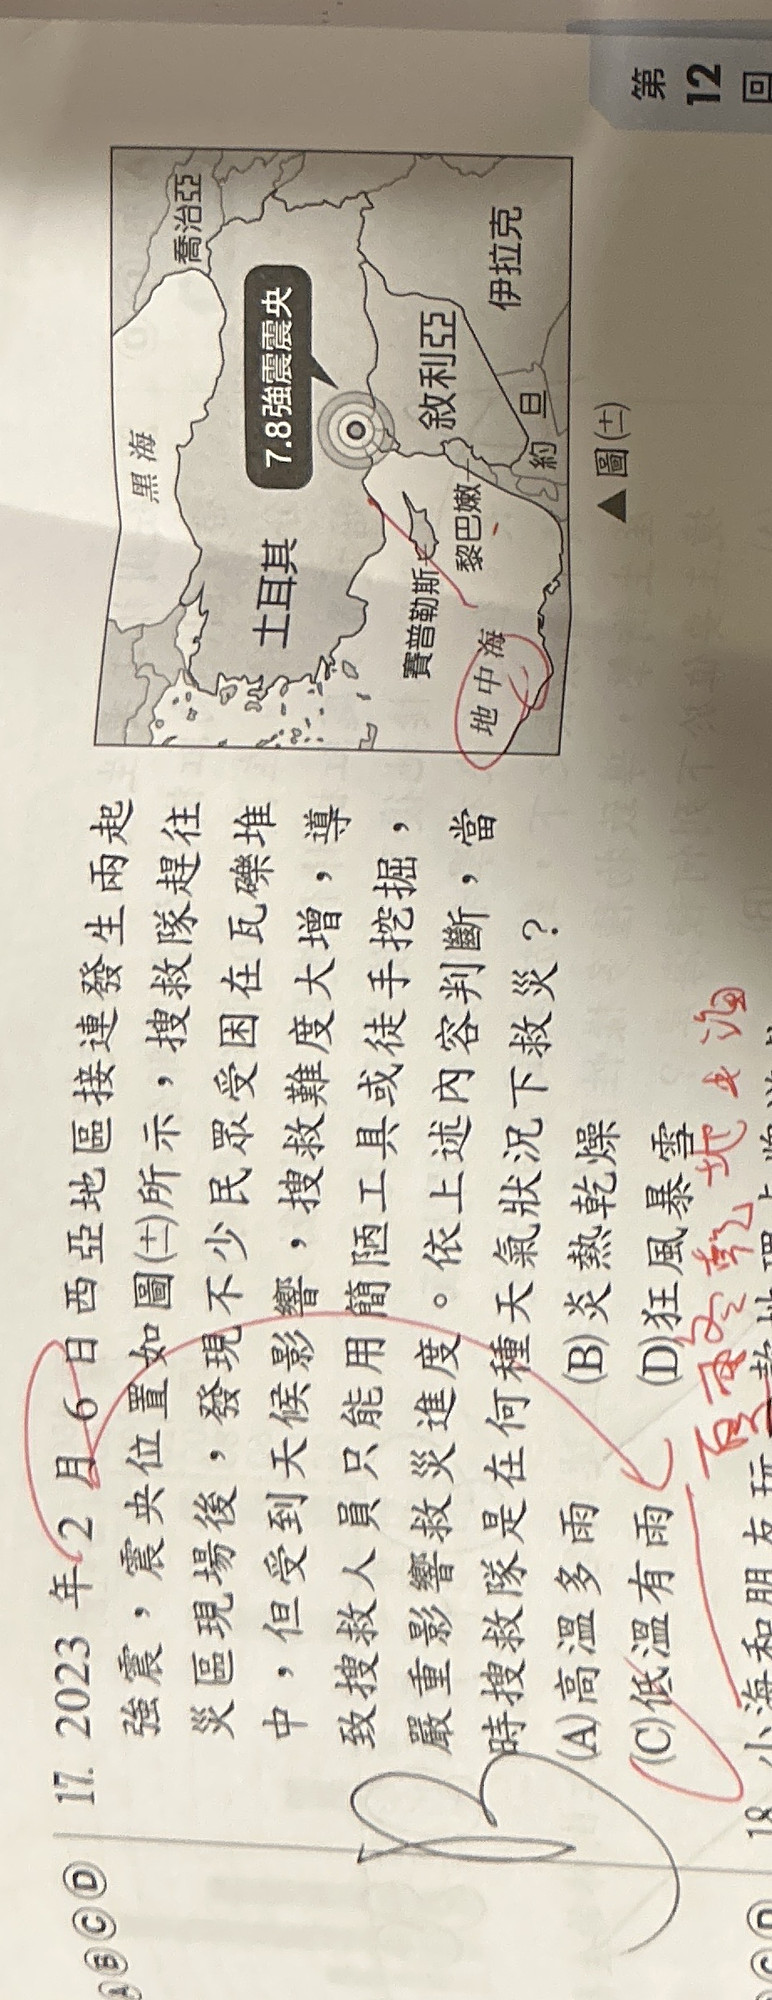 第
12
回
黑海
喬治亞
7.8強震震央
土耳其
敘利亞
伊拉克
賽普勒斯
黎巴嫩
約旦
地中海
▲圖(十一)
ⒶⒷⒸⒹ
17. 2023 年 2 月 6 日西亞地區接連發生兩起
強震，震央位置如圖(十一)所示，搜救隊趕往
災區現場後，發現不少民眾受困在瓦礫堆
中，但受到天候影響，搜救難度大增，導
致搜救人員只能用簡陋工具或徒手挖掘，
嚴重影響救災進度。依上述內容判斷，當
時搜救隊是在何種天氣狀況下救災？
(A)高溫多雨 (B)炎熱乾燥
(C)低溫有雨 (D)狂風暴雪
B
夏乾 地中海
18. 小海和朋友玩